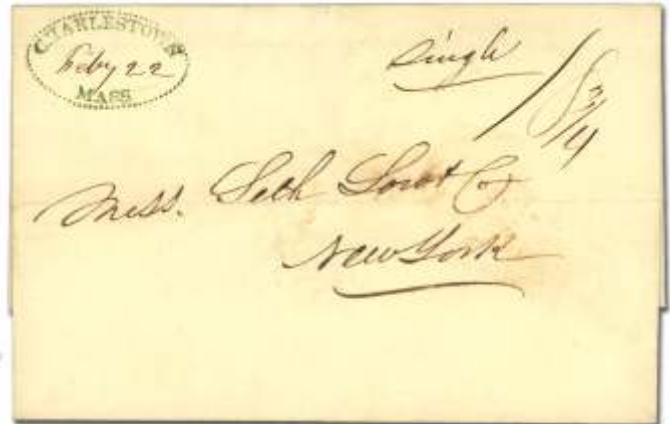 CHARLESTOWN
Feby 22
MASS.
Single
18 3/4
Mess. Seth Low & Co
New York